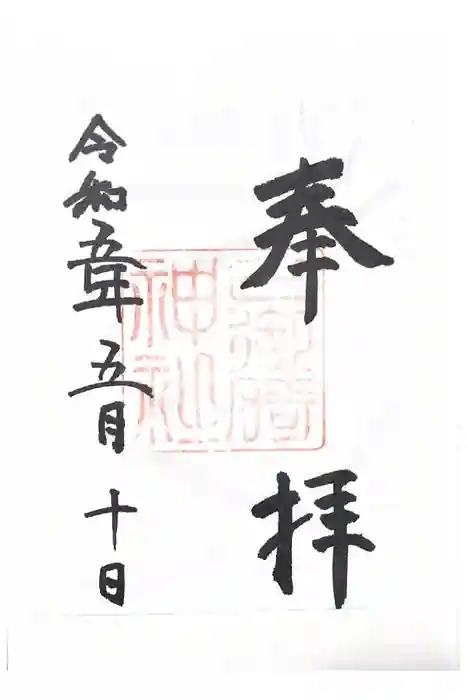 奉拝
神社
令和五年五月十日